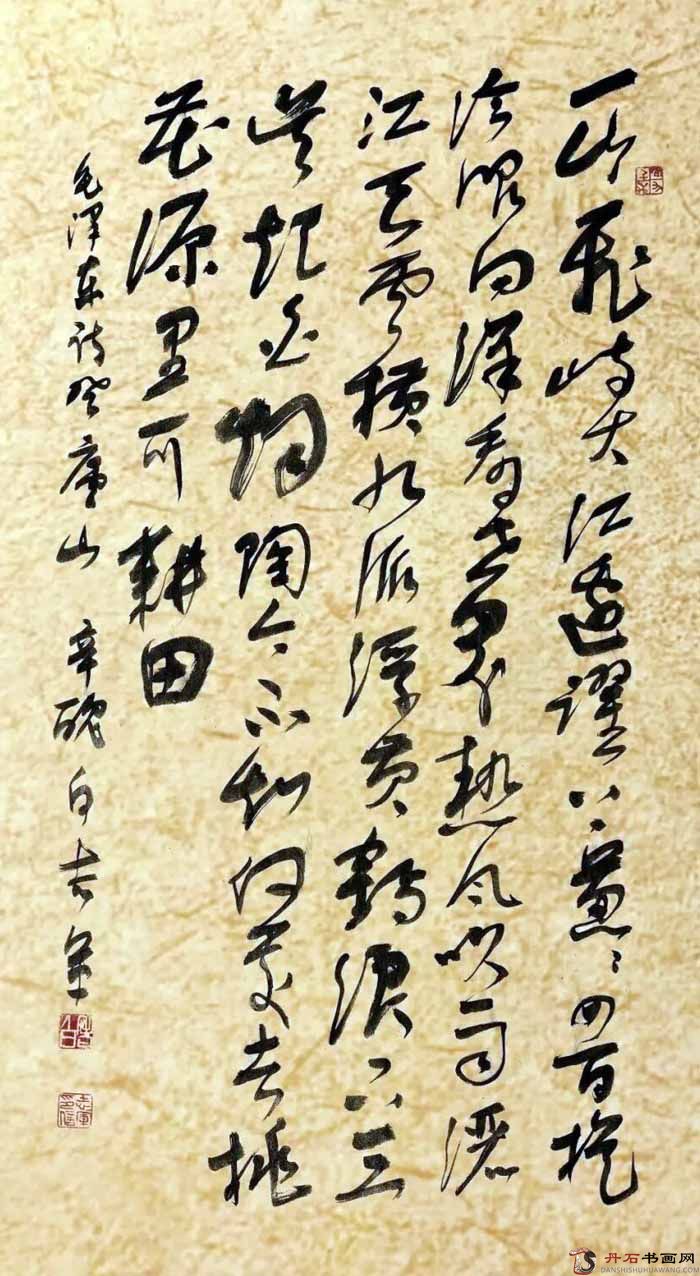 一山飛峙大江邊躍上葱々四百旋
冷眼向洋看世界熱風吹雨灑
江天雲橫九派浮黄鶴浪下三
吴起白烟陶令不知何處去桃
花源里可耕田
毛澤东诗登廬山 辛醜 白志军
丹石书画网
DANSHISHUHUAWANG.COM